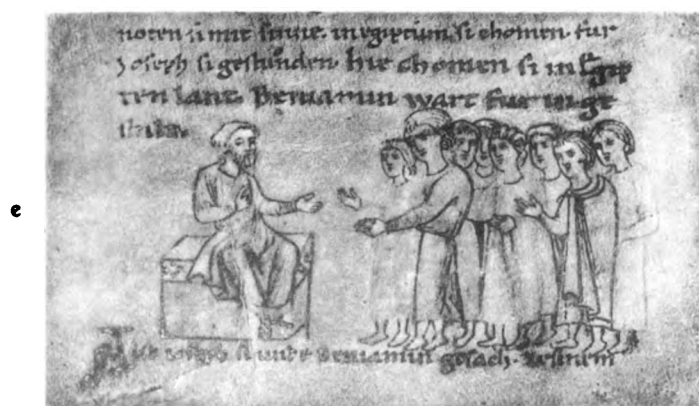 noten si mit sinne. in egiptum si chomen. fur
Joseph si gestunden. hie chomen si in Egip
ten lant. Beniamin wart fur in ge
e
si unte Beniamin gesach.